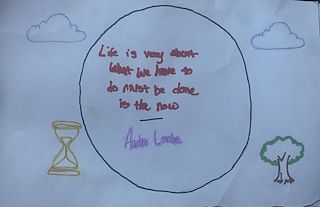 Life is very short
What we have to
do must be done
in the now
Audre Lorde